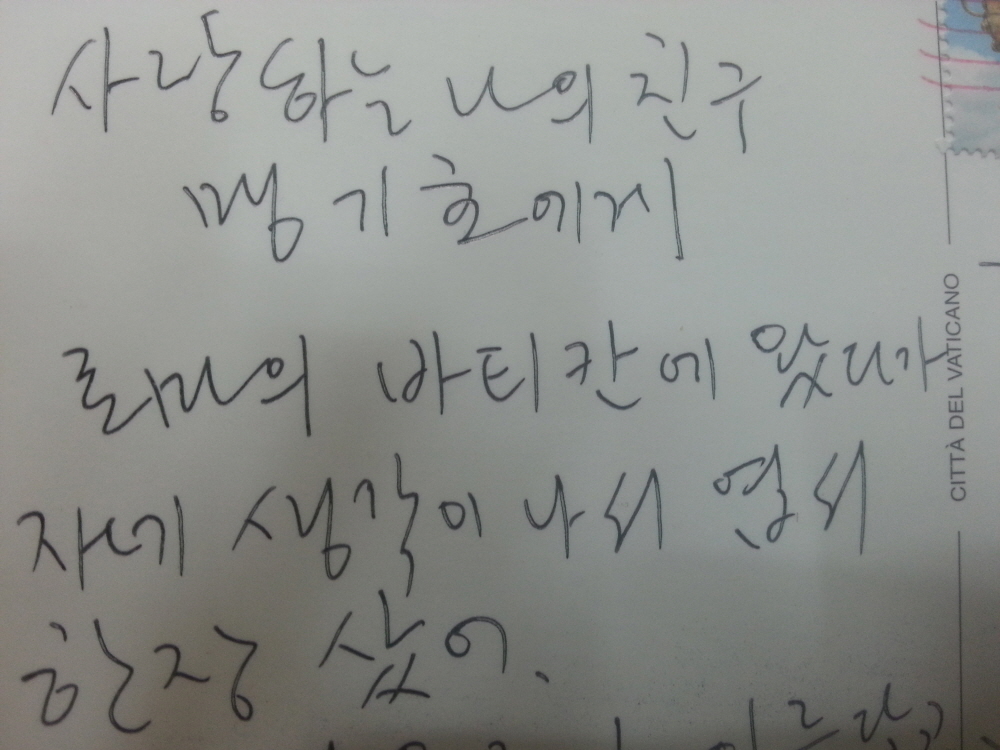 사랑하는 나의 친구
맹기호에게
로마의 바티칸에 왔다가
자네 생각이 나서 엽서
한장 샀어.
CITTÀ DEL VATICANO